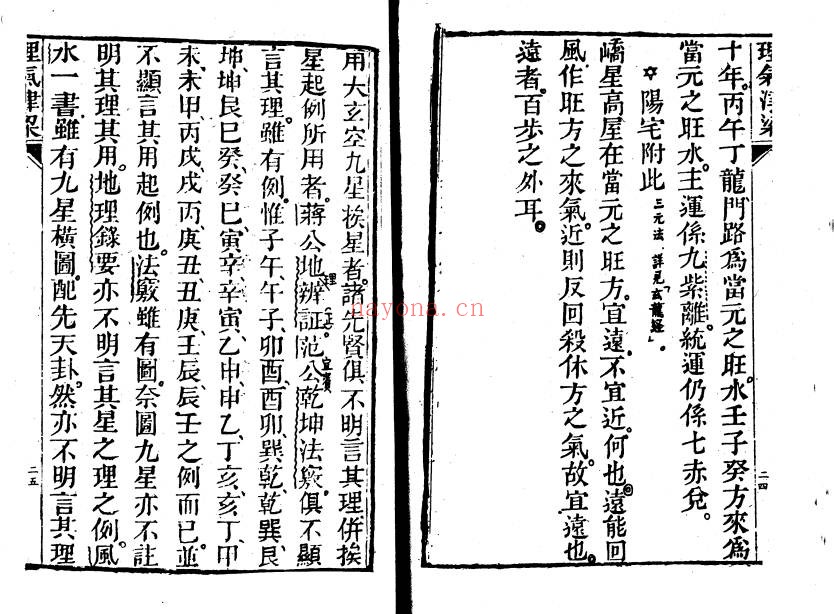 理氣津梁
二四
十年。丙午丁龍門路爲當元之旺水。壬子癸方來爲
當元之旺水。主運係九紫離。統運仍係七赤兌。
✡陽宅附此 三元法、詳見「玄龍經」。
嶠星高屋在當元之旺方。宜遠。不宜近。何也。遠能回
風作旺方之來氣。近則反回殺休方之氣。故宜遠也。
遠者。百步之外耳。
用大玄空九星挨星者。諸先賢俱不明言其理併挨
星起例所用者。蔣公地理辨証。范公乾坤法竅。俱不顯
言其理。雖有例。惟子午、午子、卯酉、酉卯、巽乾、乾巽、艮
坤、坤艮、巳癸、癸巳、寅辛、辛寅、乙申、申乙、丁亥、亥丁、甲
未、未甲、丙戌、戌丙、庚丑、丑庚、壬辰、辰壬之例而已。並
不顯言其用起例也。法竅雖有圖。奈圖九星亦不註
明其理其用。地理錄要亦不明言其星之理之例。風
水一書。雖有九星橫圖。配先天卦。然亦不明言其理
理氣津梁
二五
nayona.cn